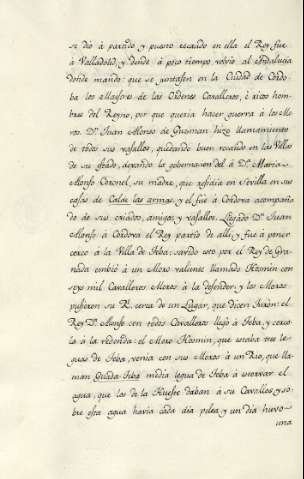 se dió à partido y puesto escudo en ella el Rey fue
à Valladolid, y donde à poco tiempo volvio al Andalucia
donde mandò que se juntasen en la Ciudad de Cordo-
ba los Maestres de las Ordenes Cavalleros, è ricos hom-
bres del Reyno, por que queria hacer guerra à los Mo-
ros. Dⁿ. Juan Alonso de Guzman hizo llamamiento
de todos sus vasallos, quedando buen recaudo en las Villas
de su Estado, dexando la gobernacion del à Dª. Maria
Alonso Coronel, su madre, que residia en Sevilla en sus
casas de Calde las armas, y el fue à Cordova acompaña-
do de sus criados, amigos y vasallos. Llegado Dⁿ. Juan
Alonso à Cordova el Rey partio de alli, y fue à poner
cerco à la Villa de Teba; savido esto por el Rey de Gra-
nada embiò à un Moro valiente llamado Hosmin con
seys mil Cavalleros Moros à la defender; y los Moros
pusieron su R. cerca de un Lugar, que dicen Turon: el
Rey Dⁿ. Alonso con todos Cavalleros llegò à Teba, y cerco
la à la redonda: el Moro Hosmin, que estaba tres le-
guas de Teba, venia con sus Moros à un Rio, que lla-
man Guada Teba media legua de Teba à estorvar el
agua, que los de la Hueste daban à su Cavallos, y so-
bre esta agua havia cada dia pelea, y un dia huvo
una